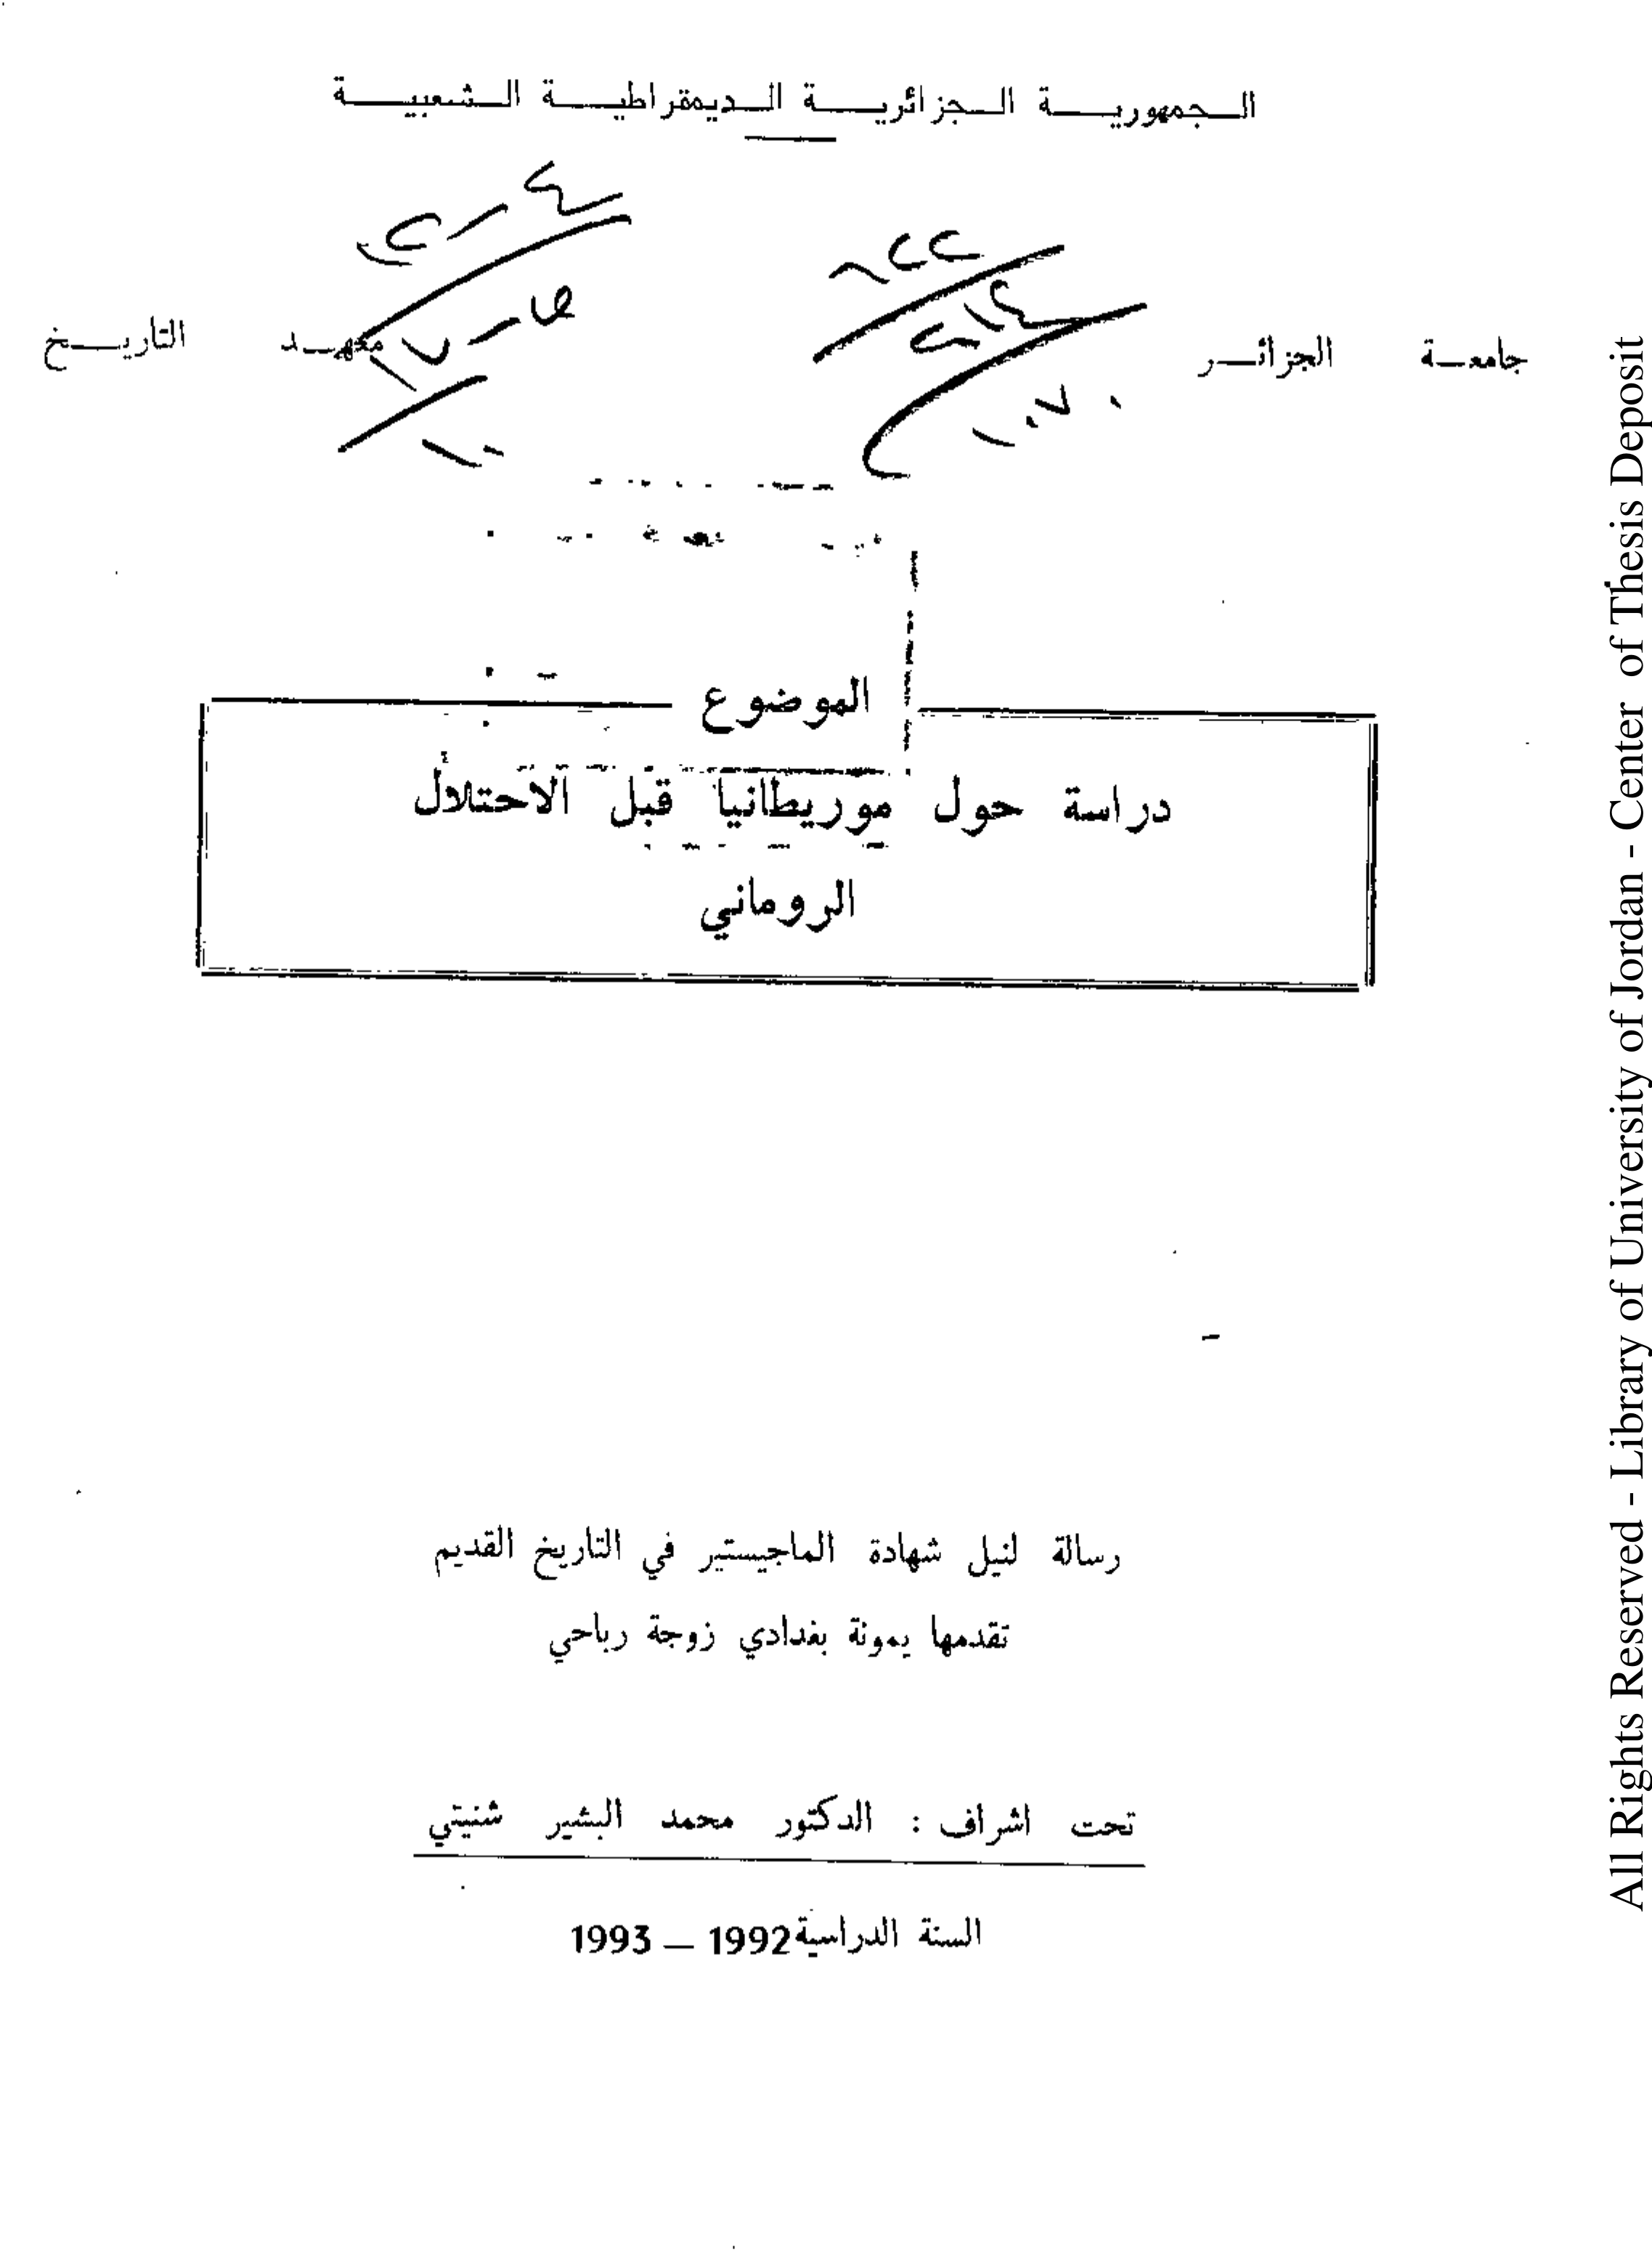 الجمهورية الجزائرية الديمقراطية الشعبية
جامعة الجزائر معهد التاريخ
الموضوع
دراسة حول موريطانيا قبل الاحتلال
الروماني
رسالة لنيل شهادة الماجيستير في التاريخ القديم
تقدمها يمونة بغدادي زوجة رباحي
تحت اشراف : الدكتور محمد البشير شنيتي
السنة الدراسية 1992 – 1993
All Rights Reserved - Library of University of Jordan - Center of Thesis Deposit